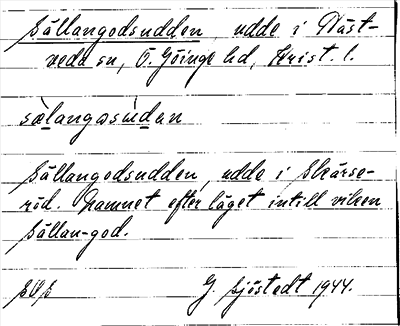 Sällangodsudden, udde i Näst-
veda sn, Ö. Göinge hd, Krist. l.
sälangosùdan
Sällangodsudden, udde i Skärse-
röd. Namnet efter läget intill viken
Sällan-god.
G. Sjöstedt 1944.